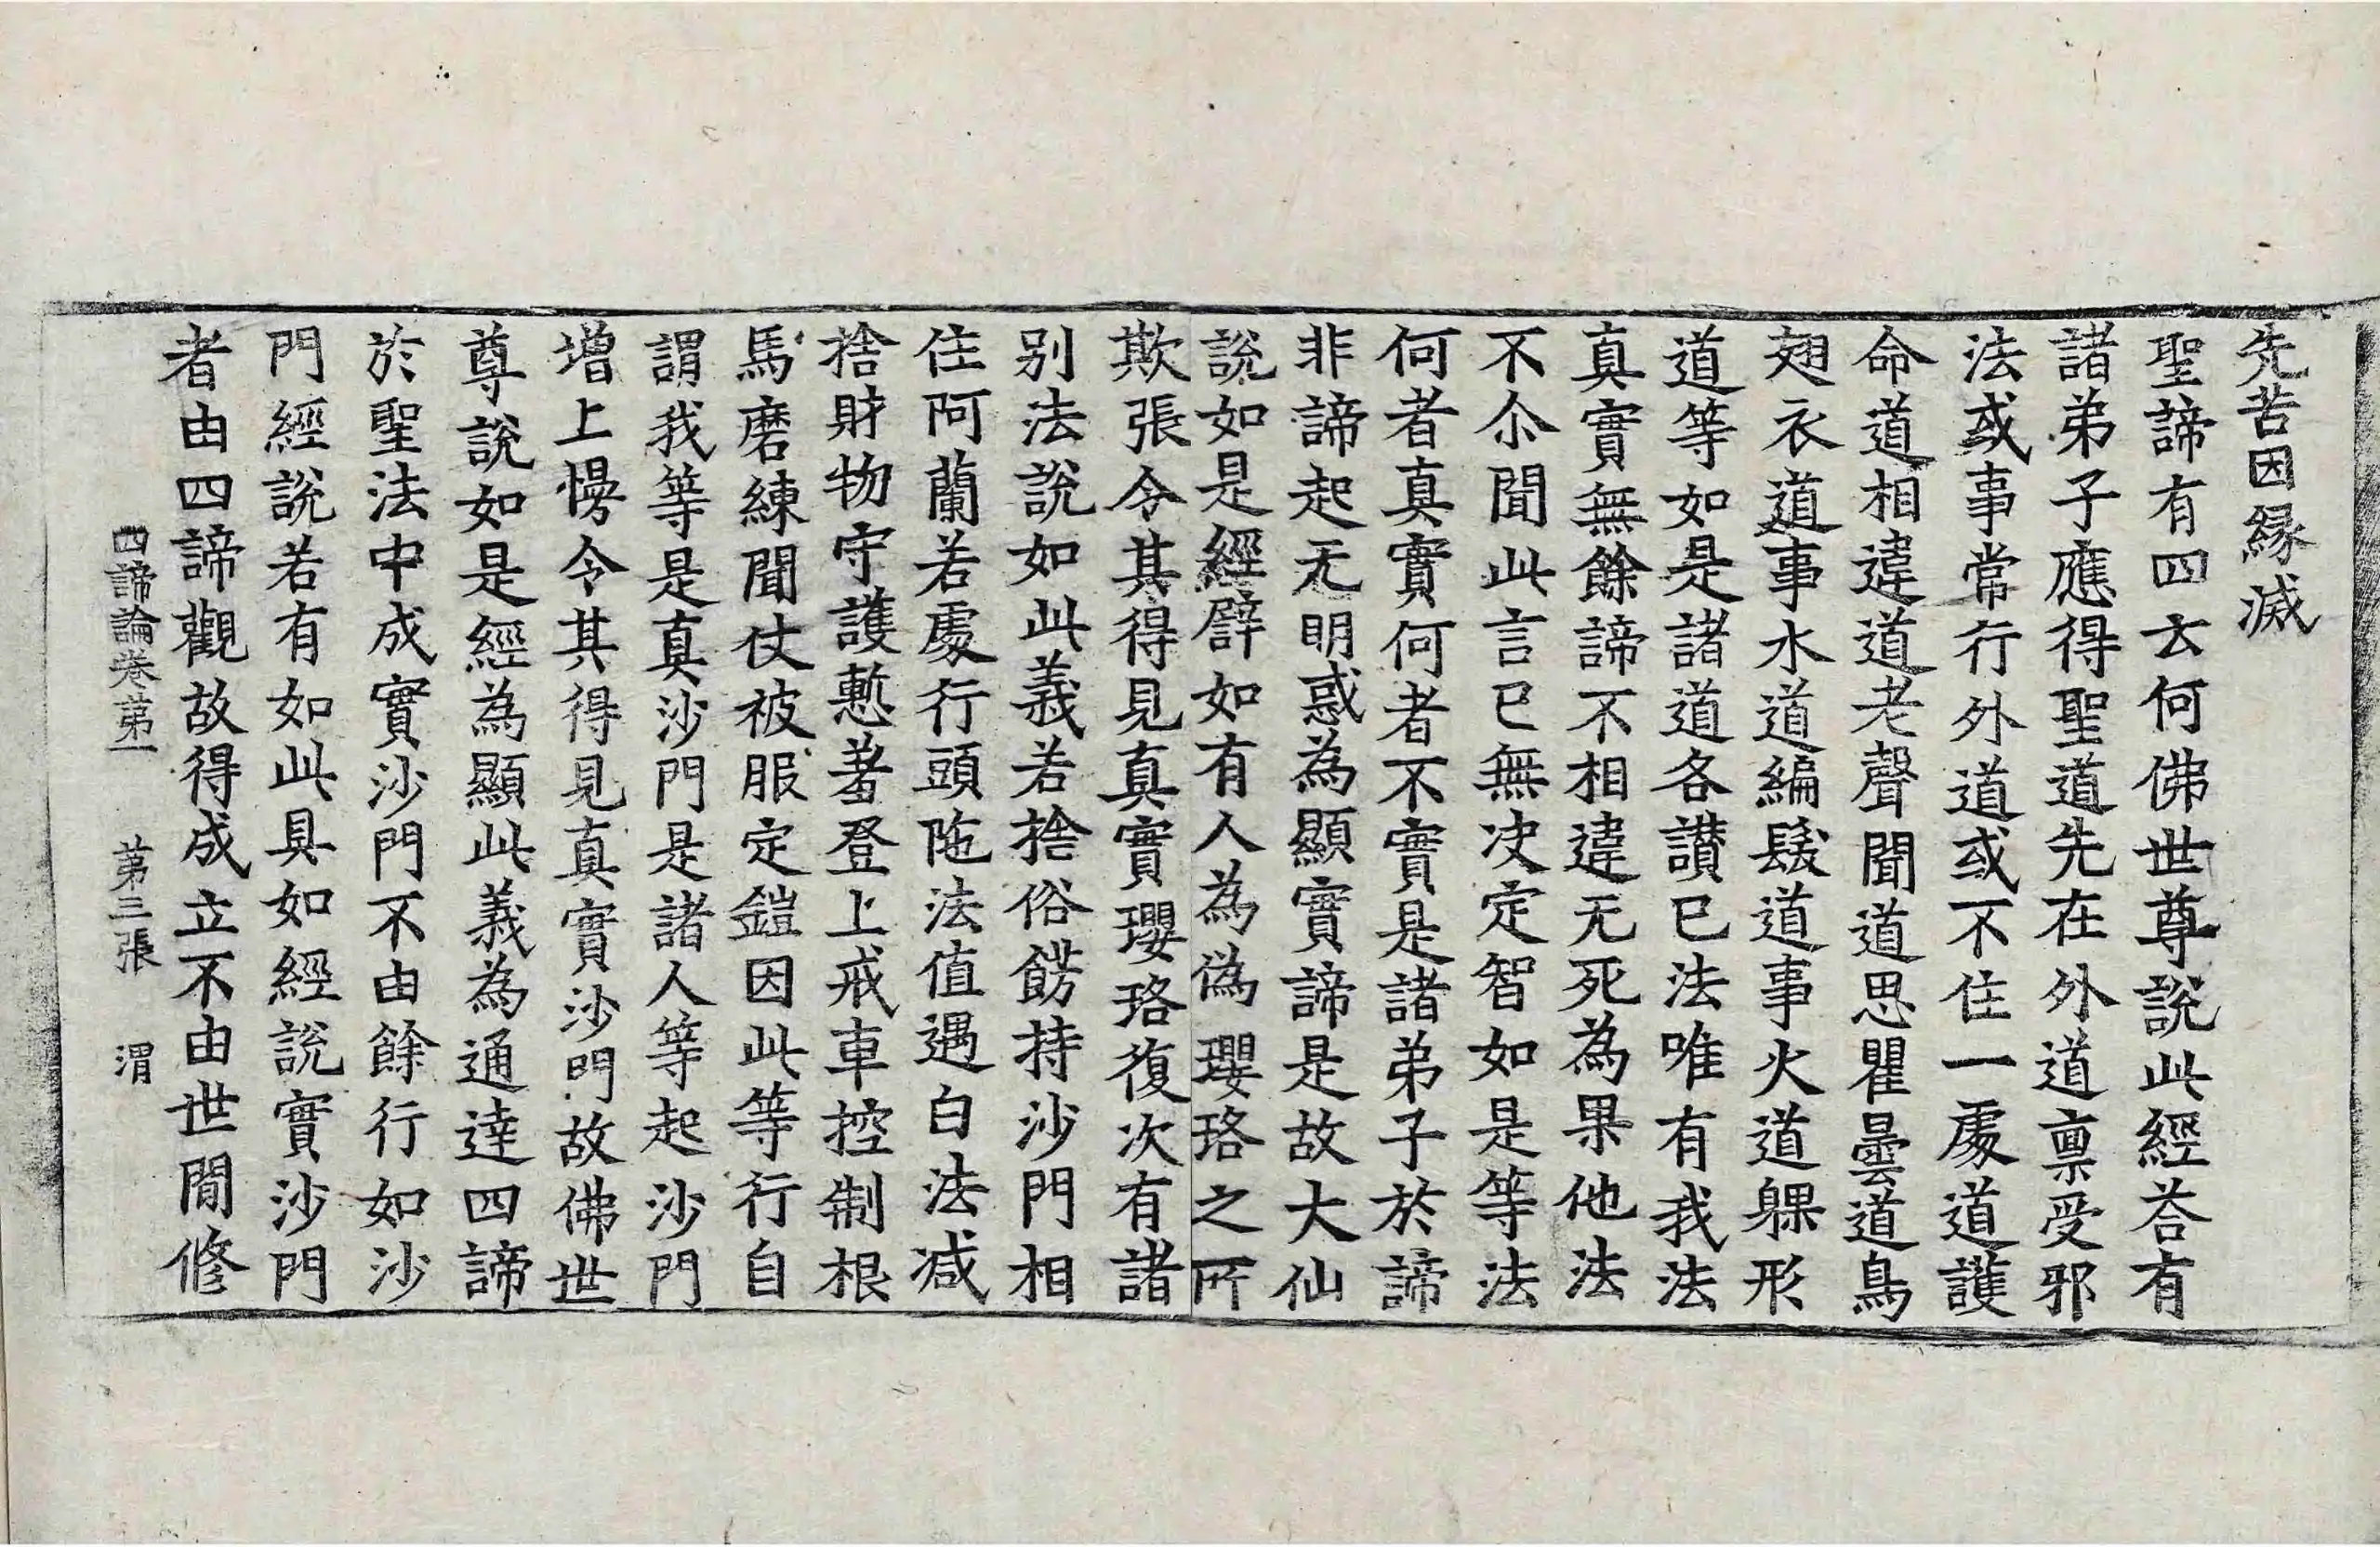 先苦因縁滅
聖諦有四云何佛世尊說此經荅有
諸弟子應得聖道先在外道禀受邪
法或事常行外道或不住一處道護
命道相違道老聲聞道思瞿曇道鳥
翅衣道事水道編髮道事火道躶形
道等如是諸道各讃已法唯有我法
真實無餘諦不相違无死為果他法
不尒聞此言已無决定智如是等法
何者真實何者不實是諸弟子於諦
非諦起无明惑為顯實諦是故大仙
說如是經譬如有人為偽瓔珞之所
欺張令其得見真實瓔珞復次有諸
別法說如此義若捨俗餝持沙門相
住阿蘭若處行頭陁法值遇白法减
捨財物守護慙羞登上戒車控制根
馬磨練聞仗被服定鎧因此等行自
謂我等是真沙門是諸人等起沙門
增上慢令其得見真實沙門故佛世
尊說如是經為顯此義為通達四諦
於聖法中成實沙門不由餘行如沙
門經說若有如此具如經說實沙門
者由四諦觀故得成立不由世閒修
四諦論卷第一 第三張 渭